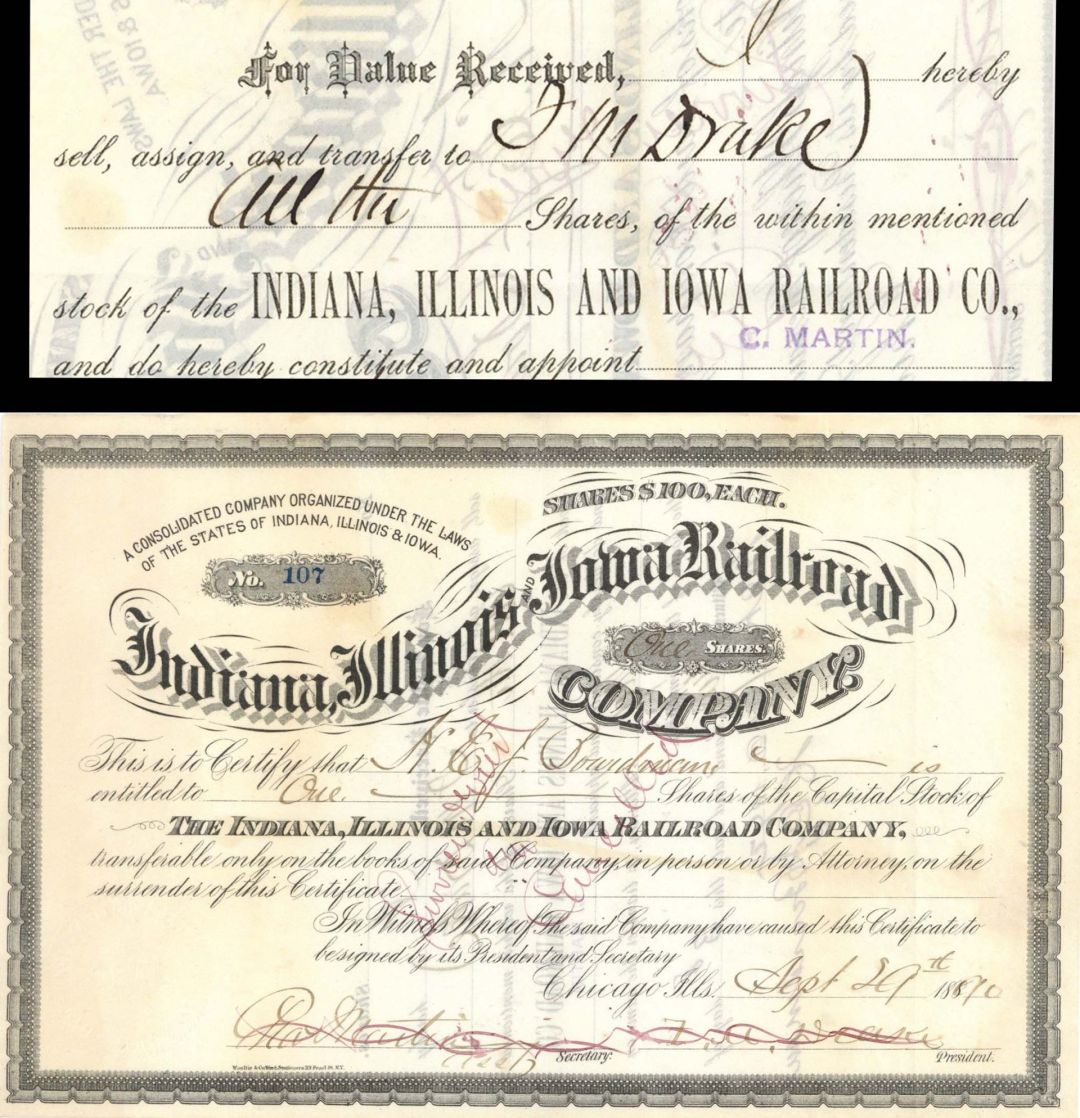 For Value Received, I hereby
sell, assign, and transfer to F M Drake
All the Shares, of the within mentioned
stock of the INDIANA, ILLINOIS AND IOWA RAILROAD CO.,
C. MARTIN.
and do hereby constitute and appoint
A CONSOLIDATED COMPANY ORGANIZED UNDER THE LAWS
OF THE STATES OF INDIANA, ILLINOIS & IOWA.
SHARES $100, EACH.
No. 107
Indiana, Illinois AND Iowa Railroad
One SHARES.
COMPANY.
This is to Certify that N. E. J. Boardman is
entitled to One Shares of the Capital Stock of
THE INDIANA, ILLINOIS AND IOWA RAILROAD COMPANY,
transferable only on the books of said Company, in person or by Attorney, on the
surrender of this Certificate.
Surrendered & Cancelled
In Witness Whereof The said Company have caused this Certificate to
be signed by its President and Secretary
Chicago Ills. Sept 29th 1890
Chas Martin Secretary. F. M. Drake President.